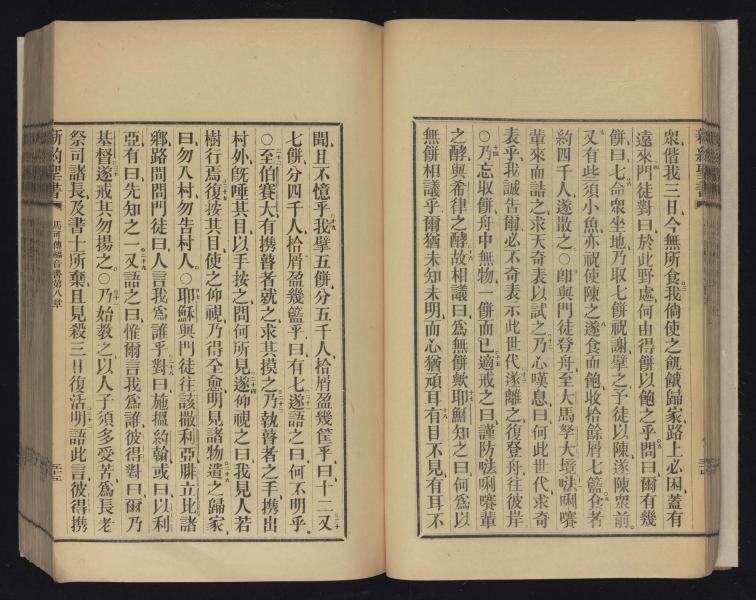 新約聖書
衆偕我三日今無所食我倘使之飢餓歸家路上必困蓋有
遠來門徒對曰於此野處何由得餅以飽之乎問曰爾有幾
餅曰七命衆坐地乃取七餅祝謝擘之予徒以陳遂陳衆前
又有些須小魚亦祝使陳之遂食而飽收拾餘屑七籃食者
約四千人遂散之○卽與門徒登舟至大馬拏大境𠵽唎嘥
輩來而詰之求天奇表以試之乃心嘆息曰何此世代求奇
表乎我誠告爾必不奇表示此世代遂離之復登舟往彼岸
○乃忘取餅舟中無物一餅而已適戒之曰謹防𠵽唎嘥輩
之酵與希律之酵故相議曰爲無餅歟耶穌知之曰何爲以
無餅相議乎爾猶未知未明而心猶頑耳有目不見有耳不
聞且不憶乎我擘五餅分五千人拾屑盈幾筐乎曰十二又
七餅分四千人拾屑盈幾籃乎曰有七遂語之曰何不明乎
○至伯賽大有携瞽者就之求其摸之乃執瞽者之手携出
村外旣唾其目以手按之問何所見遂仰視之曰我見人若
樹行焉復按其目使之仰視乃得全愈明見諸物遣之歸家
曰勿入村勿告村人○耶穌與門徒往該撒利亞腓立比諸
鄉路間問門徒曰人言我爲誰乎對曰施搵約翰或曰以利
亞有曰先知之一又語之曰惟爾言我爲誰彼得對曰爾乃
基督遂戒其勿揚之○乃始敎之以人子須多受苦爲長老
祭司諸長及書士所棄且見殺三日復活明語此言彼得携
新約聖書
馬可傳福音書第八章